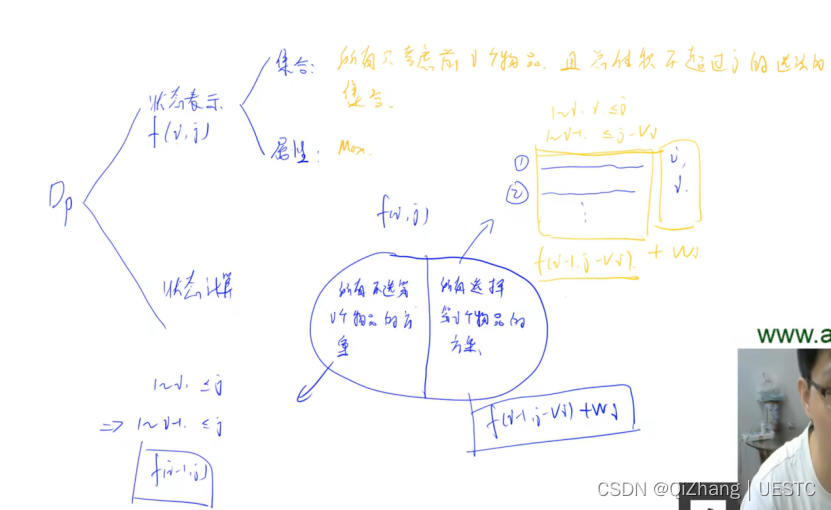 Dp
状态表示
f(i,j)
集合: 所有只考虑前i个物品, 且总体积不超过j的选法的
集合.
属性: Max.
状态计算
f(i,j)
所有不选第
i个物品的方
案
所有选择
第i个物品的
方案.
1~i. ≤j
=> 1~i-1. ≤j
f(i-1,j)
f(i-1,j-Vi)+Wi
1~i. Vi ≤j
1~i-1. ≤j-Vi
①
②
⋮
i,
i.
f(i-1,j-Vi). + Wi.
www.a
CSDN @QiZhang | UESTC